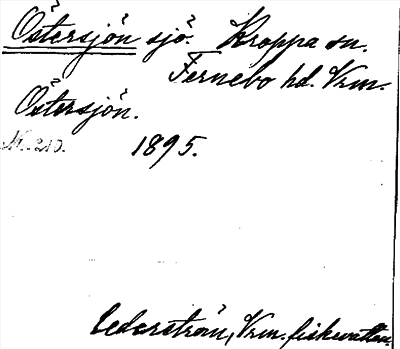 Östersjön sjö. Kroppa sn.
Fernebo hd. Vrm.
Östersjön.
N. 210. 1895.
Cederström, Vrm. fiskevatten.